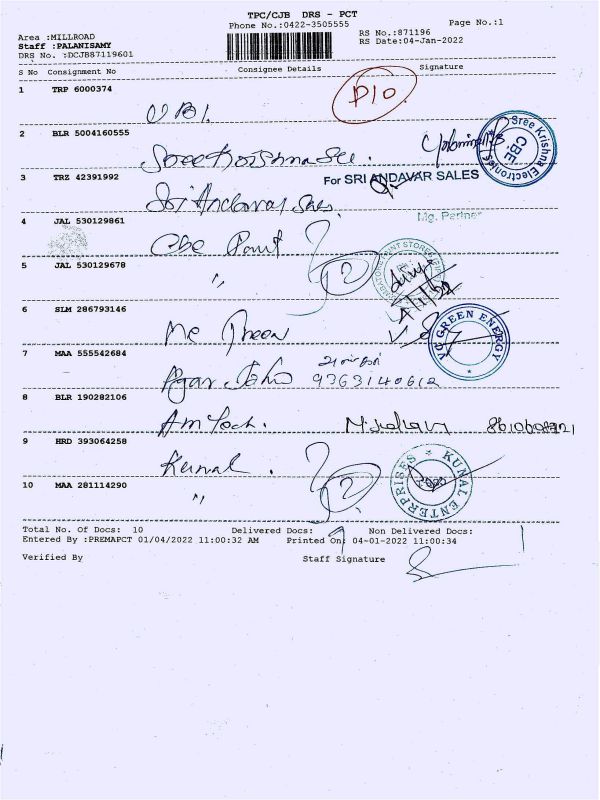 TPC/CJB DRS - PCT
Phone No.:0422-3505555
Page No.:1
Area :MILLROAD
Staff :PALANISAMY
DRS No. :DCJB87119601
RS No.:871196
RS Date:04-Jan-2022
S No Consignment No Consignee Details Signature
1 TRP 6000374
P10
UBI.
2 BLR 5004160555
Sree Krishna Ele.
Sree Krishna Electronics CBE.
3 TRZ 42391992
For SRI ANDAVAR SALES
Sri Andavar Sales.
Mg. Partner
4 JAL 530129861
Cbe Paint
2
5 JAL 530129678
"
4/1/22
6 SLM 286793146
GREEN ENERGY
7 MAA 555542684
Agar John
9363140612
8 BLR 190282106
Am Tech.
9 HRD 393064258
Kunal.
2
KUNAL ENTERPRISES
10 MAA 281114290
"
Total No. Of Docs: 10 Delivered Docs: 9 Non Delivered Docs: 1
Entered By :PREMAPCT 01/04/2022 11:00:32 AM Printed On: 04-01-2022 11:00:34
Verified By Staff Signature